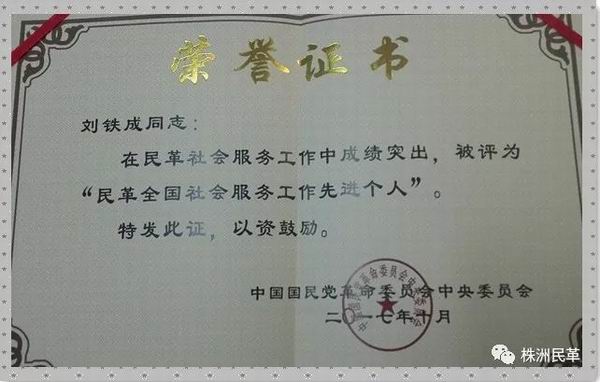 荣誉证书
刘铁成同志：
在民革社会服务工作中成绩突出，被评为
“民革全国社会服务工作先进个人”。
特发此证，以资鼓励。
中国国民党革命委员会中央委员会
二〇一七年十月
株洲民革